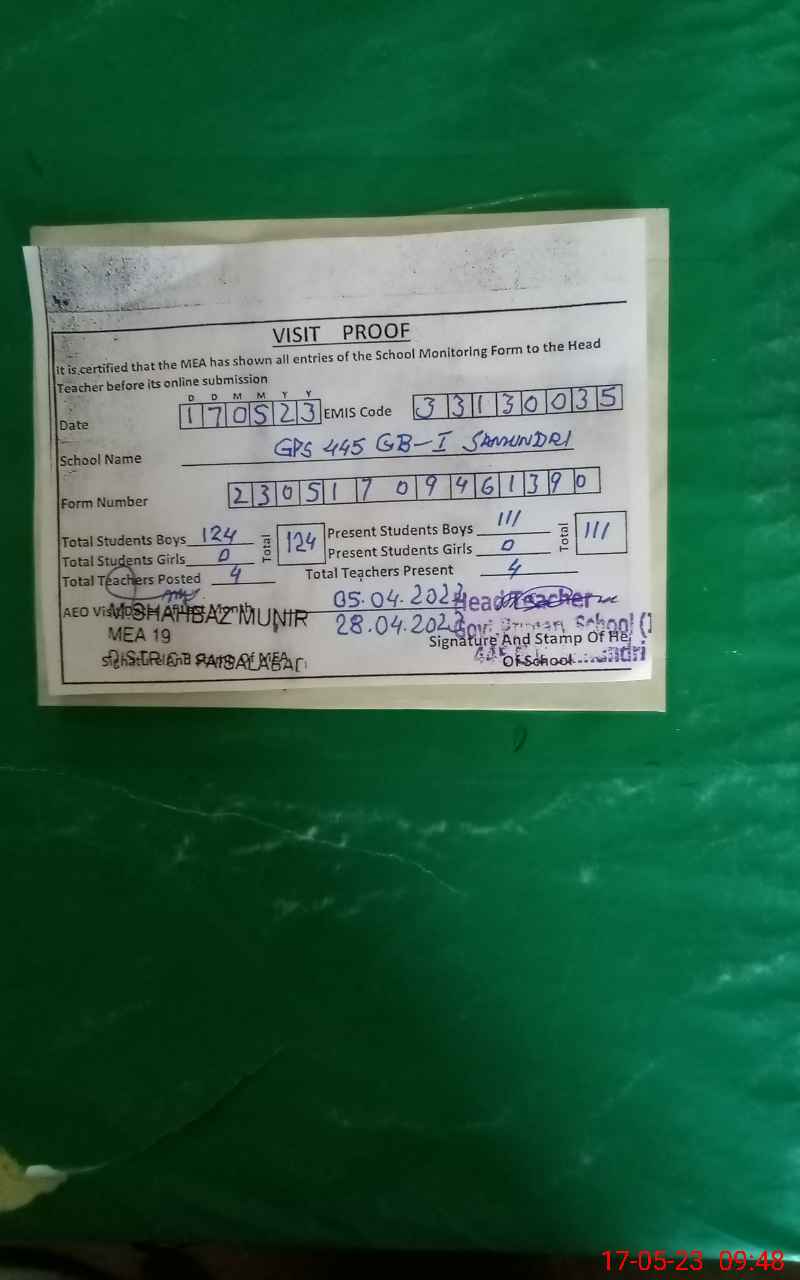 VISIT PROOF
It is certified that the MEA has shown all entries of the School Monitoring Form to the Head
Teacher before its online submission
D D M M Y Y
Date 170523 EMIS Code 33130035
School Name GPS 445 GB-I SAMUNDRI
Form Number 23051709461390
Total Students Boys 124 Total 124 Present Students Boys 111 Total 111
Total Students Girls 0 Present Students Girls 0
Total Teachers Posted 4 Total Teachers Present 4
AEO Last Month 05.04.2023 Head Teacher
M SHAHBAZ MUNIR 28.04.2023 School
MEA 19 Signature And Stamp Of
DISTRICT FAISALABAD Of School
17-05-23 09:48